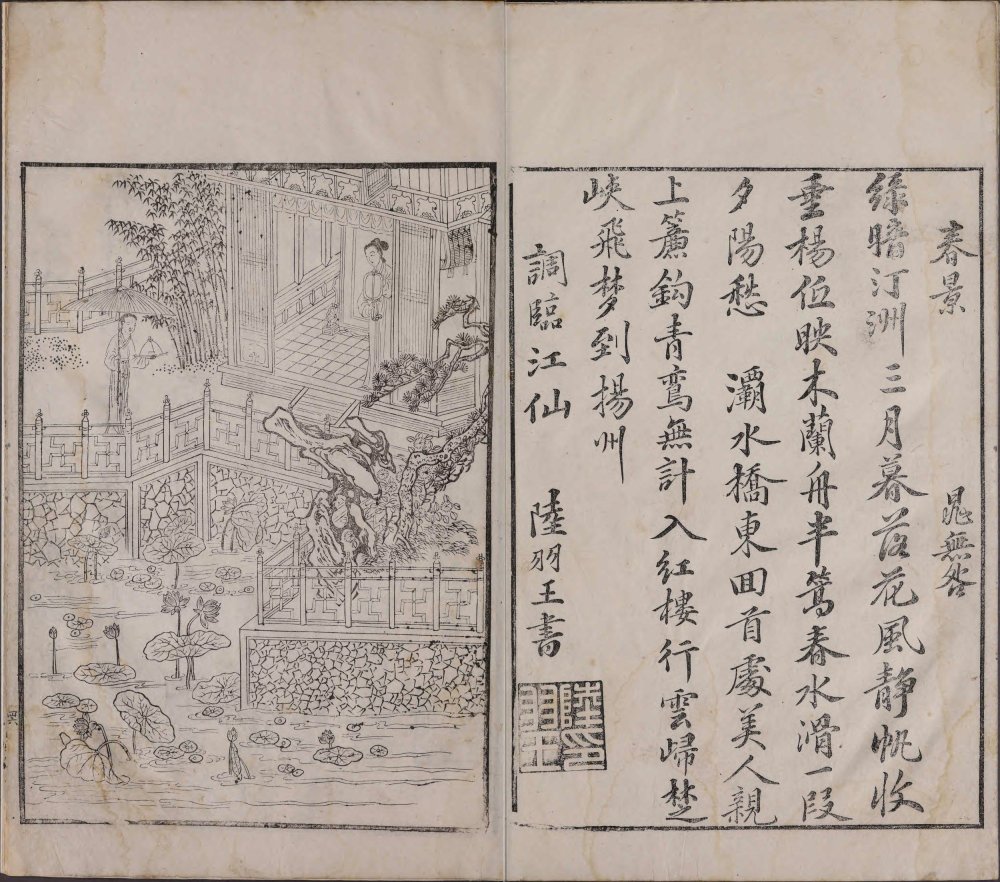 春景　晁無咎
綠暗汀洲三月暮落花風靜帆收
垂楊低映木蘭舟半篙春水滑一段
夕陽愁　灞水橋東囬首處美人親
上簾鈎青鸞無計入紅樓行雲歸楚
峽飛梦到揚州
調臨江仙　陸羽王書